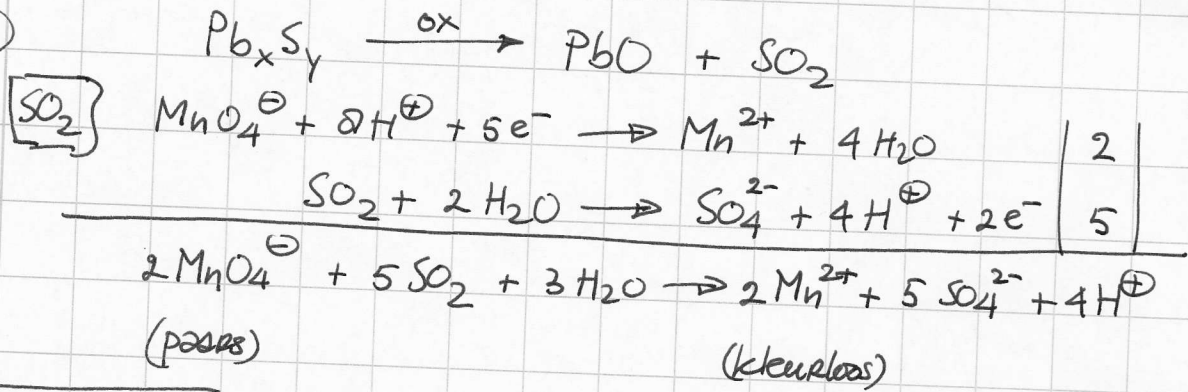 ) PbₓSᵧ —ox→ PbO + SO₂
[SO₂] MnO₄⊖ + 8H⊕ + 5e⁻ → Mn²⁺ + 4H₂O | 2 |
SO₂ + 2H₂O → SO₄²⁻ + 4H⊕ + 2e⁻ | 5 |
2MnO₄⊖ + 5SO₂ + 3H₂O → 2Mn²⁺ + 5SO₄²⁻ + 4H⊕
(paars) (kleurloos)